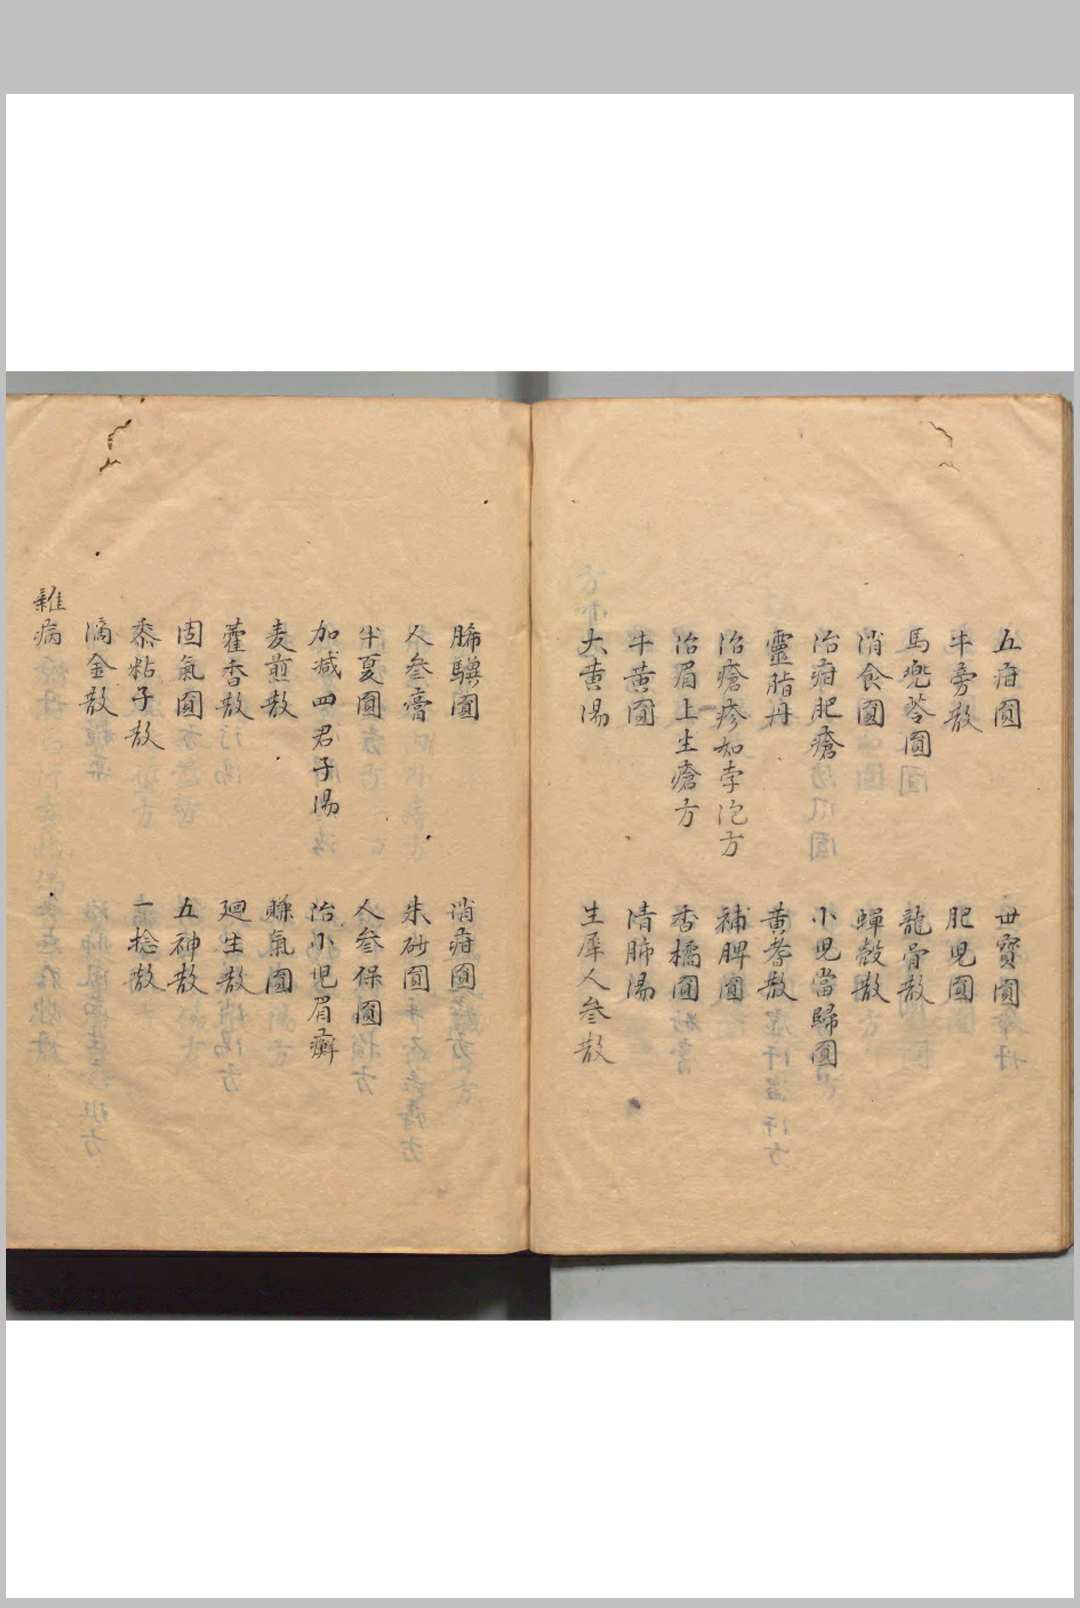 五疳圓　世寶圓
牛旁散　肥児圓
馬兜苓圓　龍骨散
消食圓　蟬殼散
治疳肥瘡　小児當歸圓
靈脂丹　黄耆散
治瘡疹如孛泡方　補脾圓
治眉上生瘡方　香橘圓
牛黄圓　清肺湯
大黄湯　生犀人参散
消疳圓
人参膏　朱砂圓
半夏圓　人参保圓
加减四君子湯　治小児眉癬
麦煎散　氣圓
藿香散　廻生散
固氣圓　五神散
黍粘子散　一捻散
滴金散
雜病